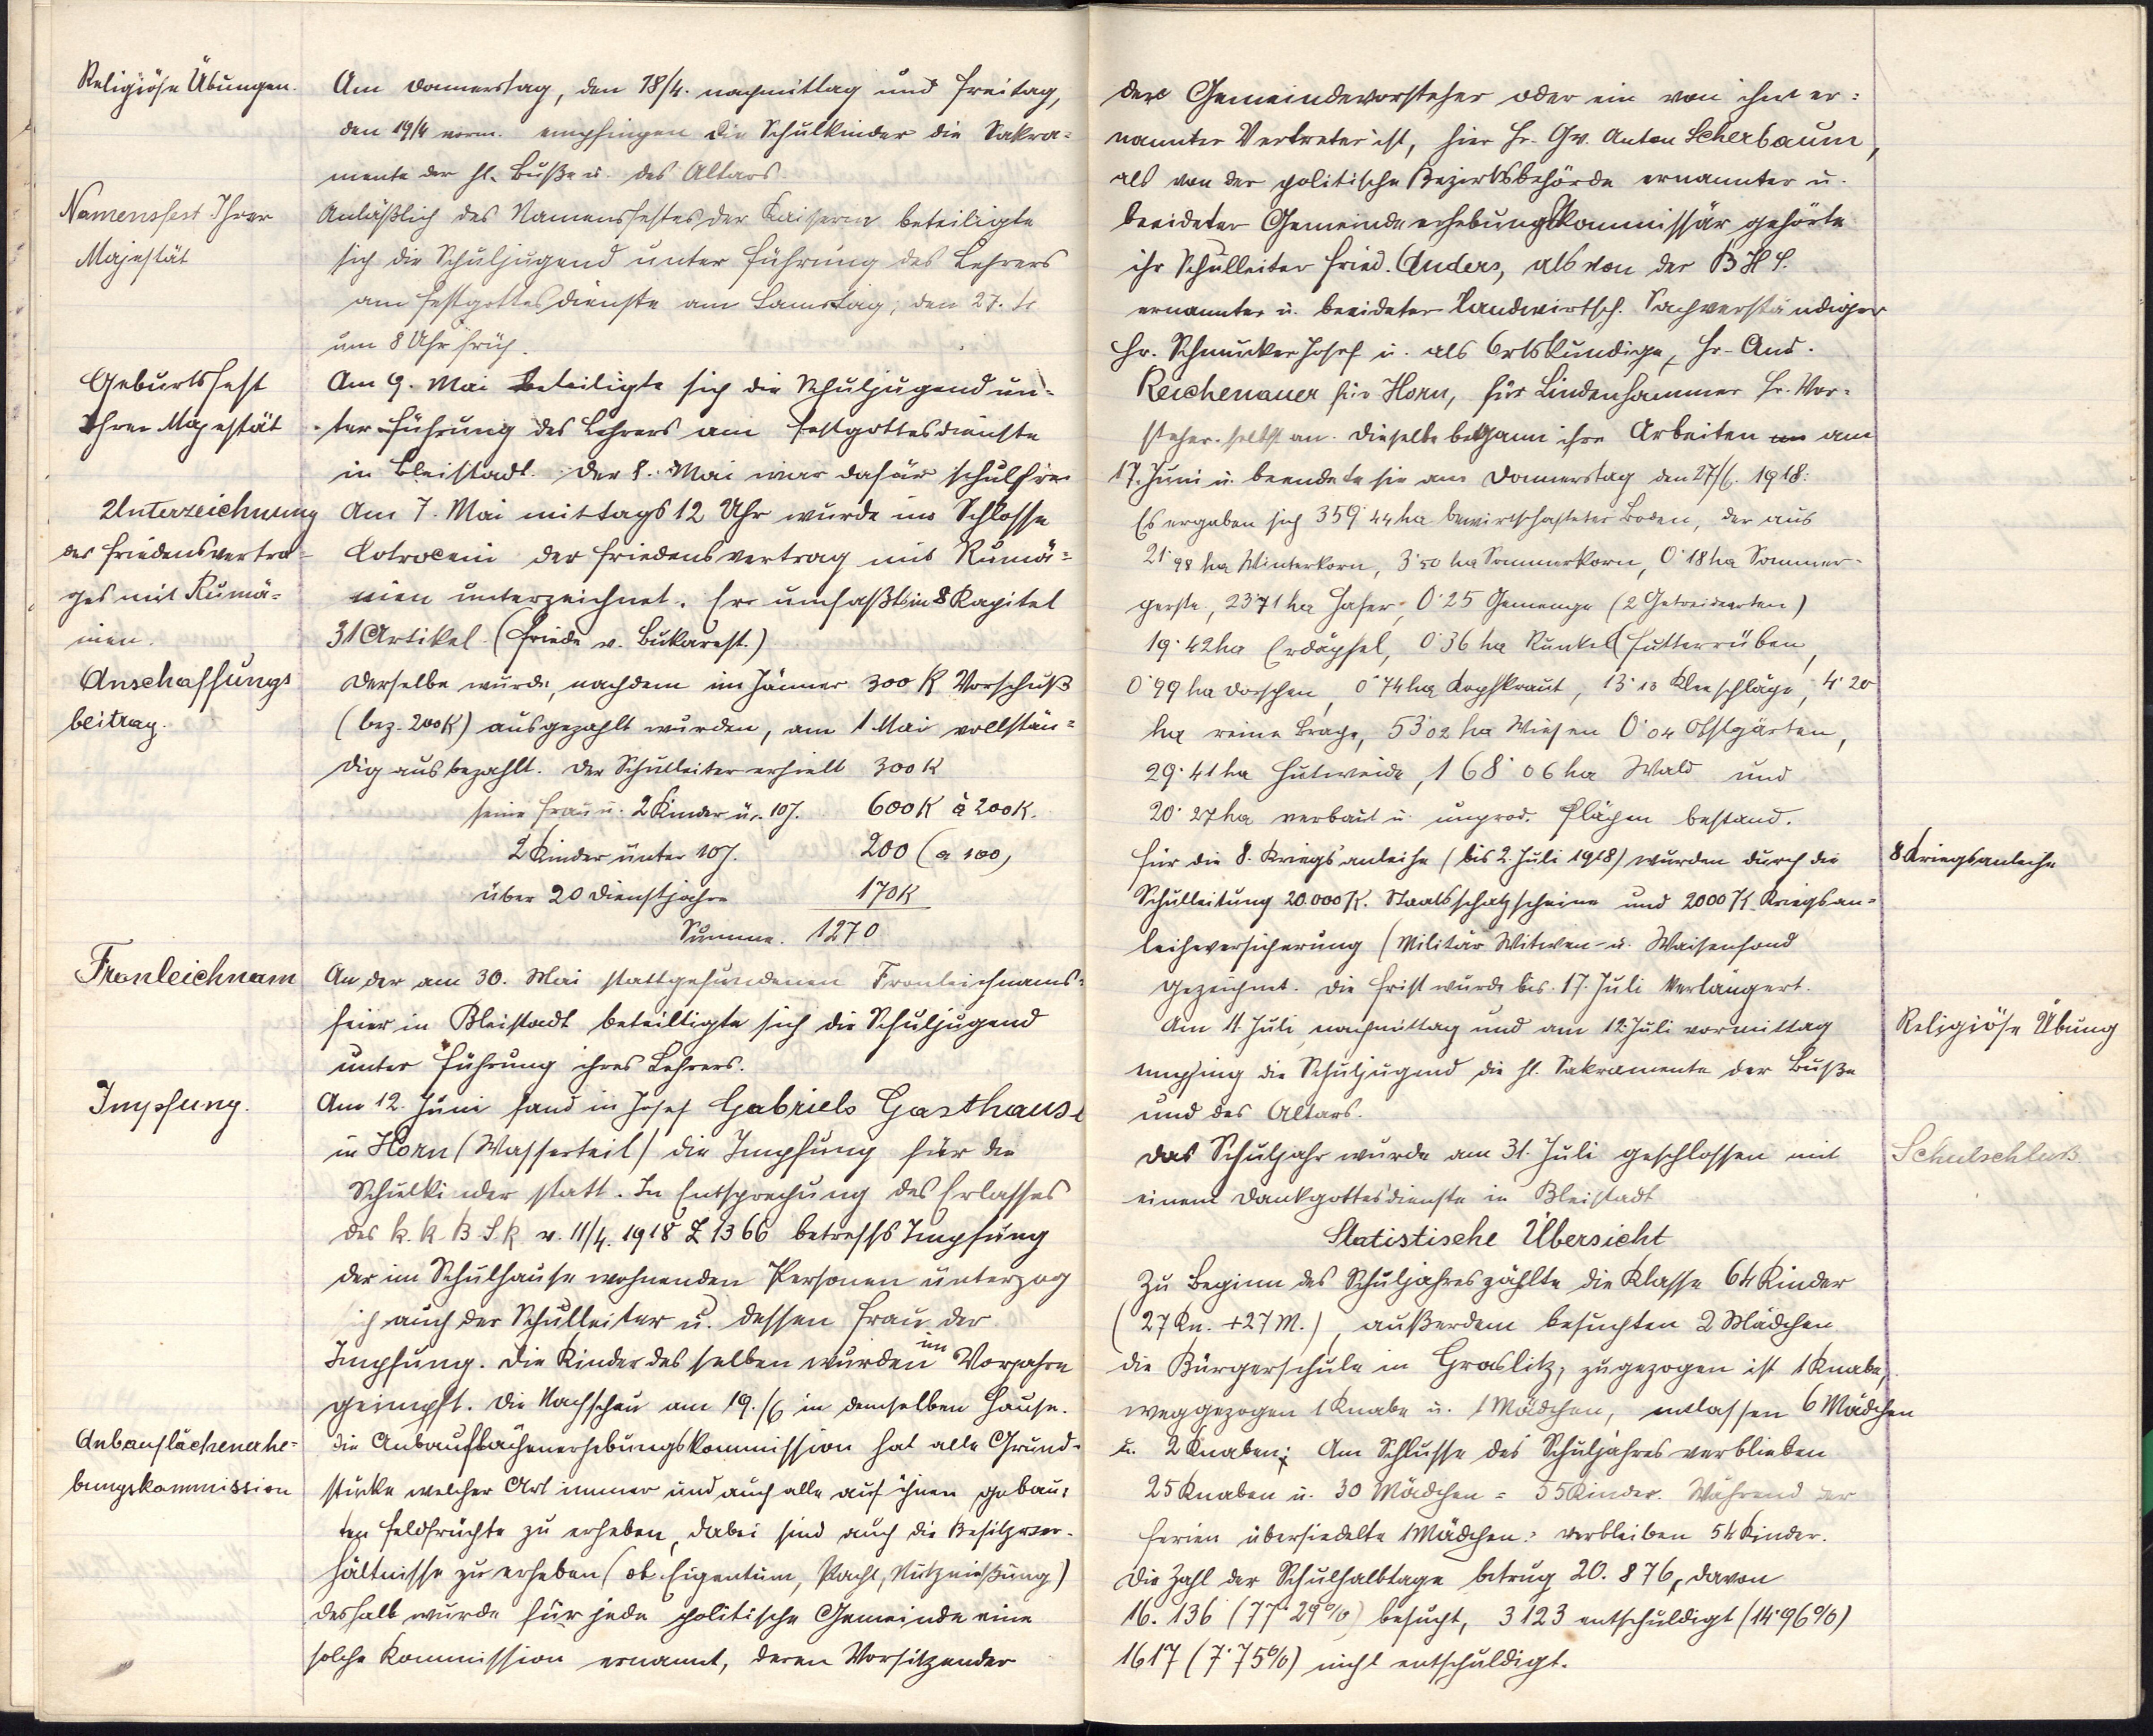 Religiöse Übungen.
Am Donnerstag, den 18/4. nachmittag und Freitag,
den 19/4 vorm. empfingen die Schulkinder die Sakra=
mente der hl. Buße u. des Altars.
Namensfest Ihrer
Majestät
Anläßlich des Namensfestes der Kaiserin beteiligte
sich die Schuljugend unter Führung des Lehrers
am Festgottesdienste am Samstag, den 27. 4.
um 8 Uhr früh.
Geburtsfest
Ihrer Majestät
Am 9. Mai beteiligte sich die Schuljugend un=
ter Führung des Lehrers am Festgottesdienste
in Bleistadt. Der 8. Mai war dafür schulfrei
Unterzeichnung
des Friedensvertra=
ges mit Rumä=
nien.
Am 7. Mai mittags 12 Uhr wurde im Schlosse
Cotroceni der Friedensvertrag mit Rumä=
nien unterzeichnet. Er umfaßt in 8 Kapitel
31 Artikel. (Friede v. Bukarest.)
Anschaffungs
beitrag.
Derselbe wurde, nachdem im Jänner 300 K Vorschuß
(bez. 200 K) ausgezahlt wurden, am 1 Mai vollstän=
dig ausbezahlt. Der Schulleiter erhielt 300 K
seine Frau u. 2 Kinder ü. 10 J. 600 K à 200 K.
2 Kinder unter 10 J. 200 (a 100)
über 20 Dienstjahre 170 K
Summe. 1270
Fronleichnam
An der am 30. Mai stattgefundenen Fronleichnams=
feier in Bleistadt beteiltigte sich die Schuljugend
unter Führung ihres Lehrers.
Impfung.
Am 12. Juni fand in Josef Gabriels Gasthause
in Horn (Wasserteil) die Impfung für die
Schulkinder statt. In Entsprechung des Erlasses
des k. k. B. S. R. v. 11/4. 1918 Z 1366 betreffs Impfung
der im Schulhause wohnenden Personen unterzog
sich auch der Schulleiter u. dessen Frau der
Impfung. Die Kinder desselben wurden im Vorjahre
geimpft. Die Nachschau am 19./6 in demselben Hause.
Anbauflächenerhe=
bungskommission
Die Anbauflächenerhebungskommission hat alle Grund=
stücke welcher Art immer und auch alle auf ihnen gebau=
ten Feldfrüchte zu erheben, dabei sind auch die Besitzver=
hältnisse zu erheben (ob Eigentum, Pacht, Nutznießung)
deshalb wurde für jede politische Gemeinde eine
solche Kommission ernannt, deren Vorsitzender
der Gemeindevorsteher oder ein von ihm er=
nannter Vertreter ist, hier Hr. Gv. Anton Scherbaum,
als von der politische Bezirksbehörde ernannter u.
beeideter Gemeindeerhebungskommissär gehörte
ihr Schulleiter Fried. Anders, als von der B H S.
ernannter u. beeideter landwirtsch. Sachverständiger
Hr. Schmucker Josef u. als Ortskundige, Hr. And.
Reichenauer für Horn, für Lindenhammer Hr. Vor=
steher selbst an. Dieselbe begann ihre Arbeiten am
17. Juni u. beendete sie am Donnerstag den 27/6. 1918.
Es ergaben sich 359˙44 ha bewirtschafteter Boden, der aus
21˙98 ha Winterkorn, 3˙50 ha Sommerkorn, 0˙18 ha Sommer=
gerste, 23˙71 ha Hafer, 0˙25 Gemenge (2 Getreidearten)
19˙42 ha Erdäpfel, 0˙36 ha Runkel(Futterrüben,
0˙99 ha Dorschen, 0˙74 ha Kopfkraut, 13˙10 Kleeschläge, 4˙20
ha reine Brage, 53˙02 ha Wiesen 0˙04 Obstgärten,
29˙41 ha Hutweide, 168˙06 ha Wald und
20˙27 ha verbaut u. unprod. Flächen bestand.
8 Kriegsanleihe
Für die 8. Kriegsanleihe (bis 2. Juli 1918) wurden durch die
Schulleitung 20.000 K. Staatsschatzscheine und 2000 K Kriegsan=
leiheversicherung (Militär Witwen- u. Waisenfond
gezeichnet. Die Frist wurde bis 17. Juli verlängert.
Religiöse Übung
Am 11. Juli nachmittag und am 12. Juli vormittag
empfing die Schuljugend die hl. Sakramente der Buße
und des Altars.
Schulschluß
Das Schuljahr wurde am 31. Juli geschlossen mit
einem Dankgottesdienste in Bleistadt
Statistische Übersicht
Zu Beginn des Schuljahres zählte die Klasse 64 Kinder
(27 Kn. + 27 M.), außerdem besuchten 2 Mädchen
die Bürgerschule in Graslitz, zugezogen ist 1 Knabe,
weggezogen 1 Knabe u. 1 Mädchen, entlassen 6 Mädchen
u. 2 Knaben; Am Schlusse des Schuljahres verblieben
25 Knaben u. 30 Mädchen = 55 Kinder. Während der
Ferien übersiedelte 1 Mädchen: verbleiben 54 Kinder.
Die Zahl der Schulhalbtage betrug 20.876, davon
16.136 (77˙29%) besucht, 3123 entschuldigt (14˙96%)
1617 (7˙75%) nicht entschuldigt.